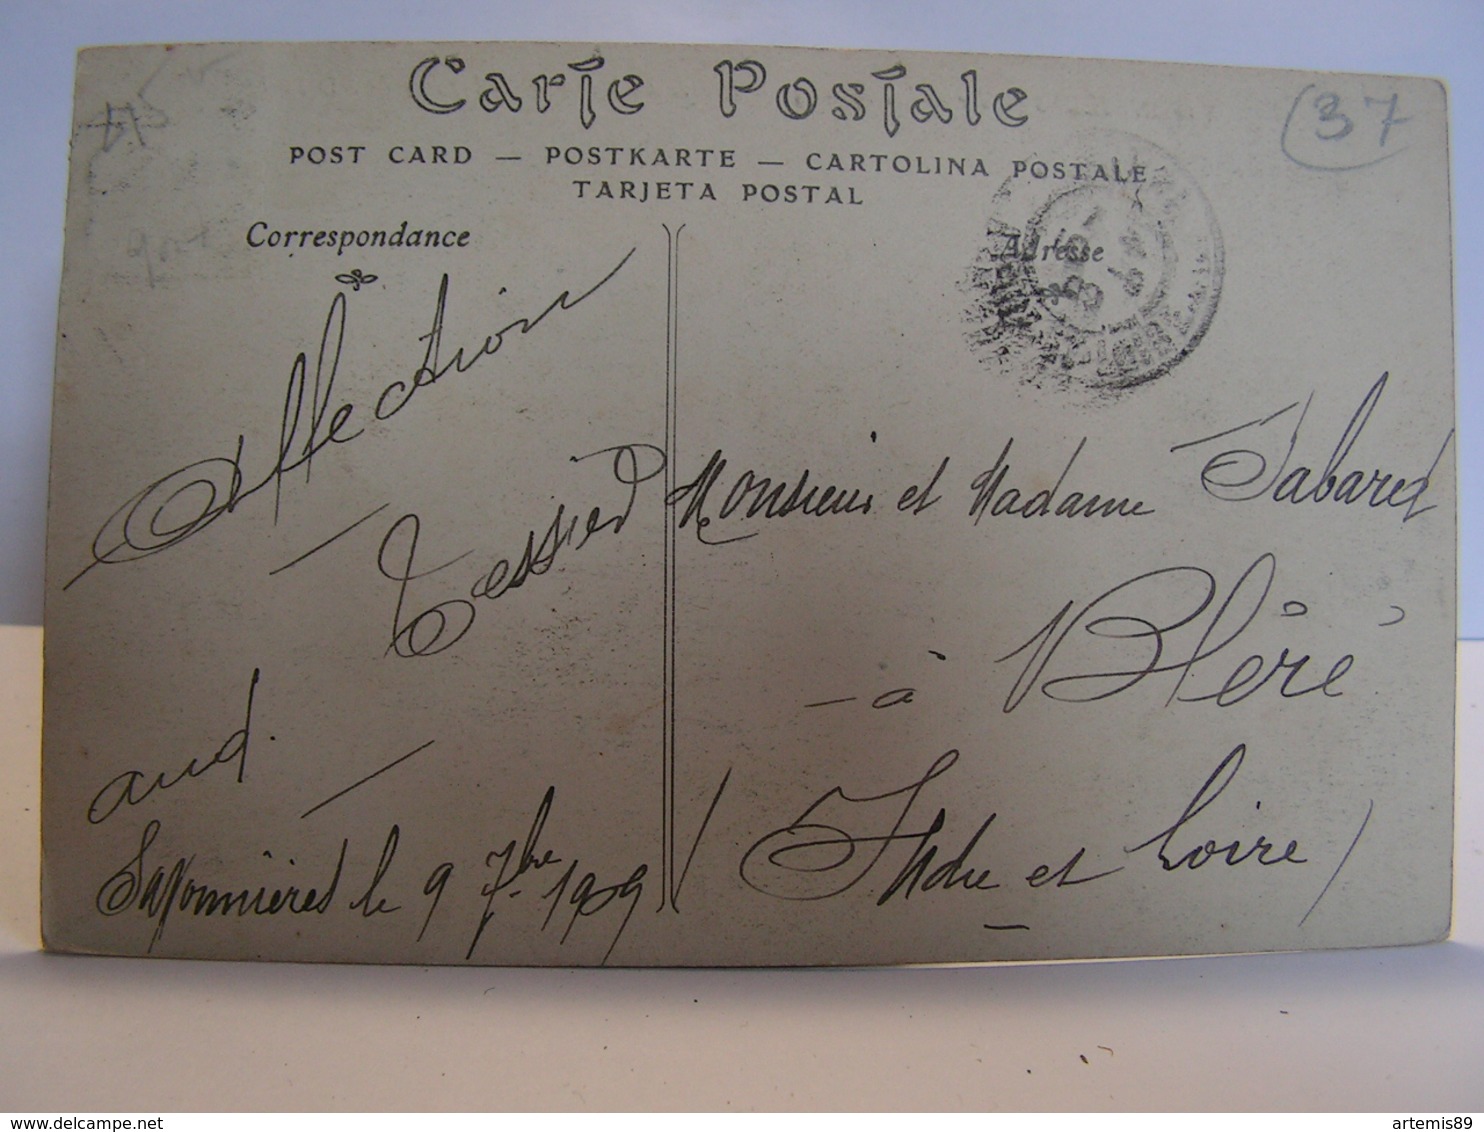 Carte Postale
37
POST CARD — POSTKARTE — CARTOLINA POSTALE
TARJETA POSTAL
Correspondance
Adresse
Affection
Tessier
aud.
Savonnières le 9 7bre 1909
Monsieur et Madame Tabaret
à Bléré
(Indre et Loire)
www.delcampe.net
artemis89